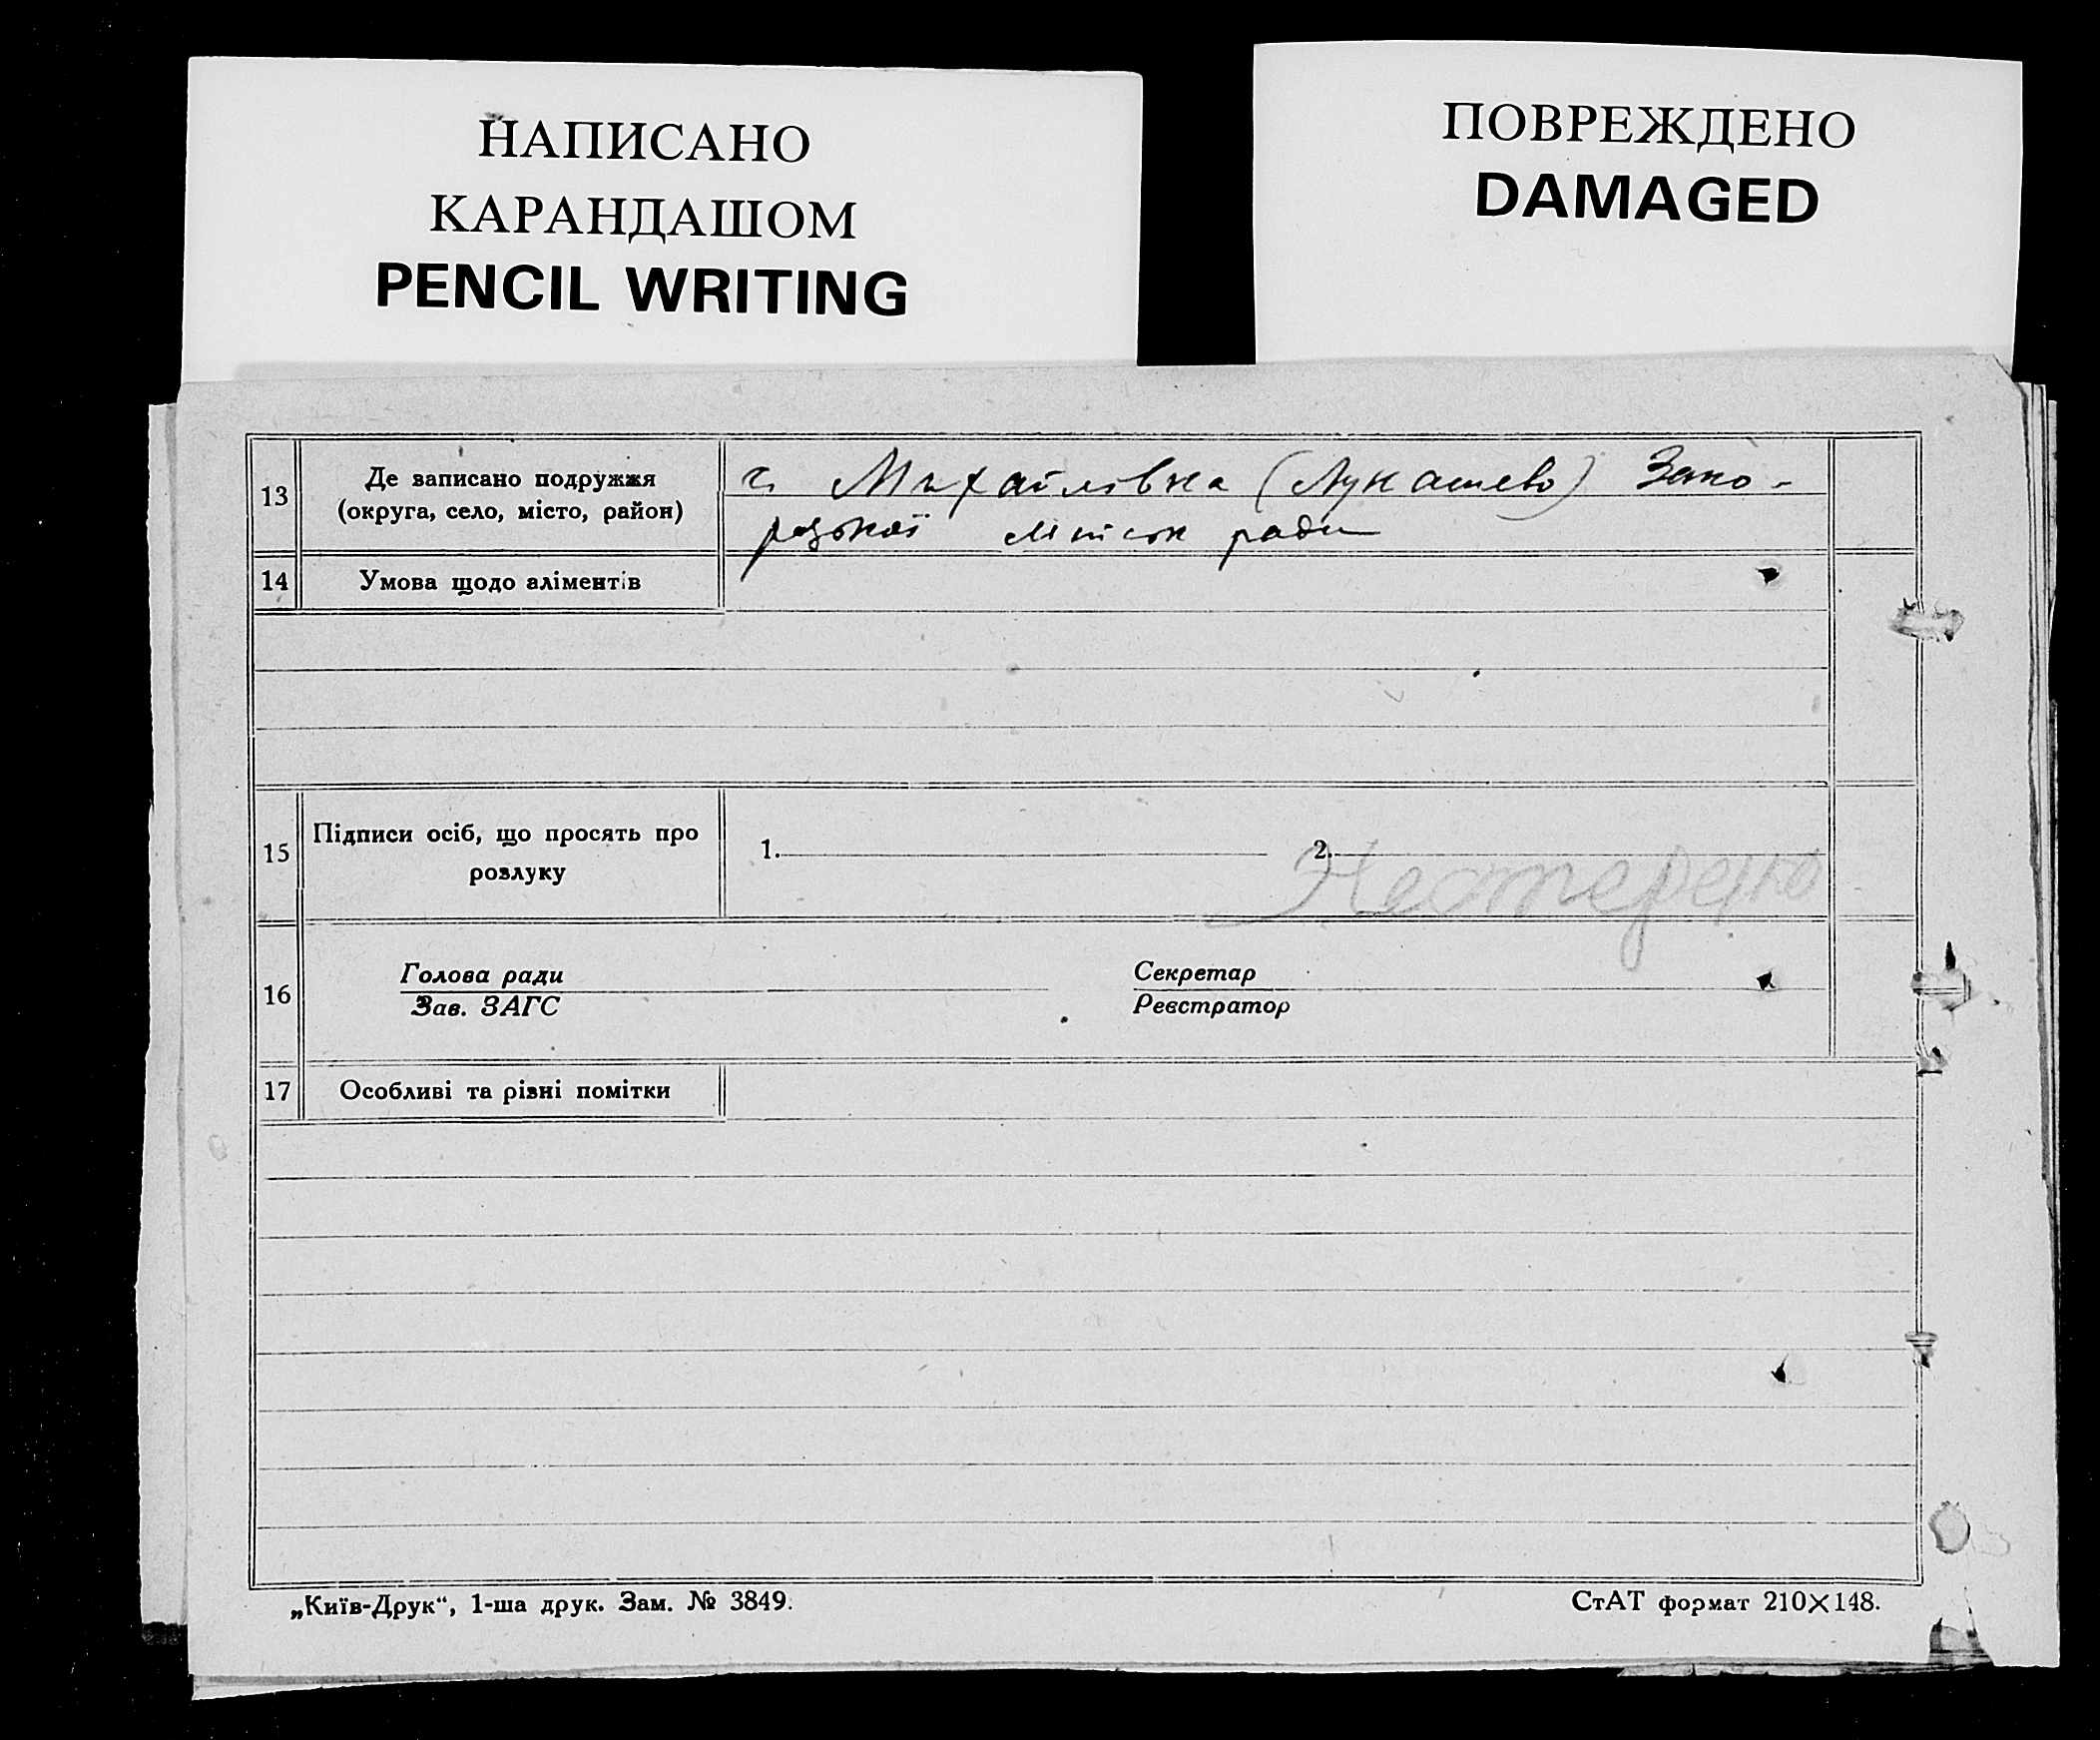 НАПИСАНО
КАРАНДАШОМ
PENCIL WRITING
ПОВРЕЖДЕНО
DAMAGED
13 Де записано подружжя
(округа, село, місто, район)
с. Михайлівка (Лукашево) Запо-
різької міськ ради
14 Умова щодо аліментів
15 Підписи осіб, що просять про
розлуку
1. 2.
Нестерено
16 Голова ради
Зав. ЗАГС
Секретар
Реєстратор
17 Особливі та різні помітки
„Київ-Друк“, 1-ша друк. Зам. № 3849.
СтАТ формат 210×148.